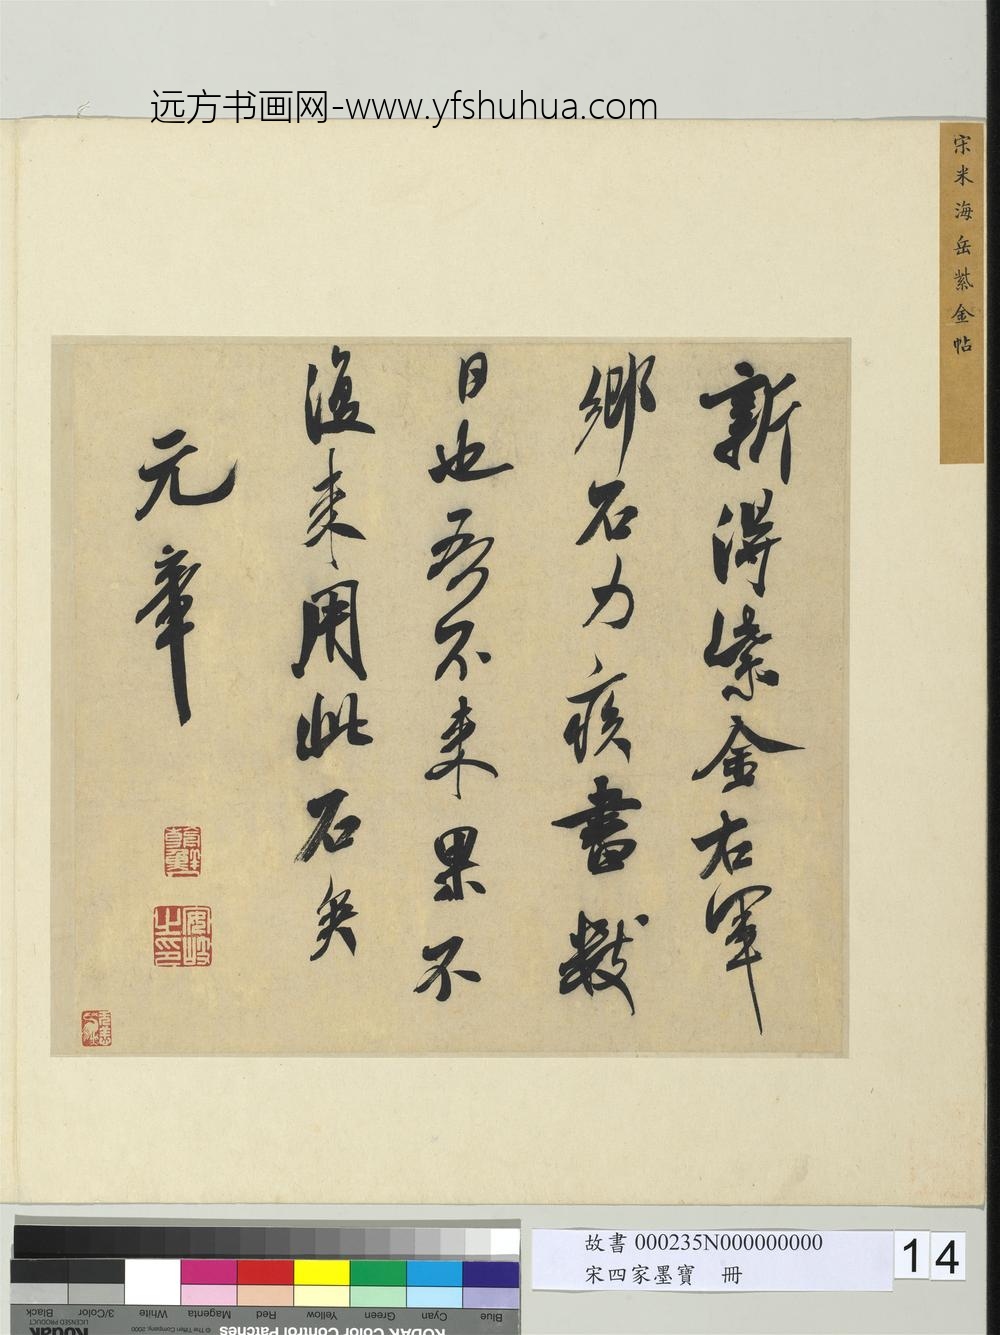 远方书画网-www.yfshuhua.com
宋米海岳紫金帖
新得紫金右軍
鄉石力疾書數
日也吾不來果不
復来用此石矣
元章
故書 000235N000000000
宋四家墨寶 冊
14
Black
3/Color
White
Magenta
Red
Yellow
Green
Cyan
Blue
Kodak
LICENSED PRODUCT
© The Tiffen Company, 2000
KODAK Color Control Patches